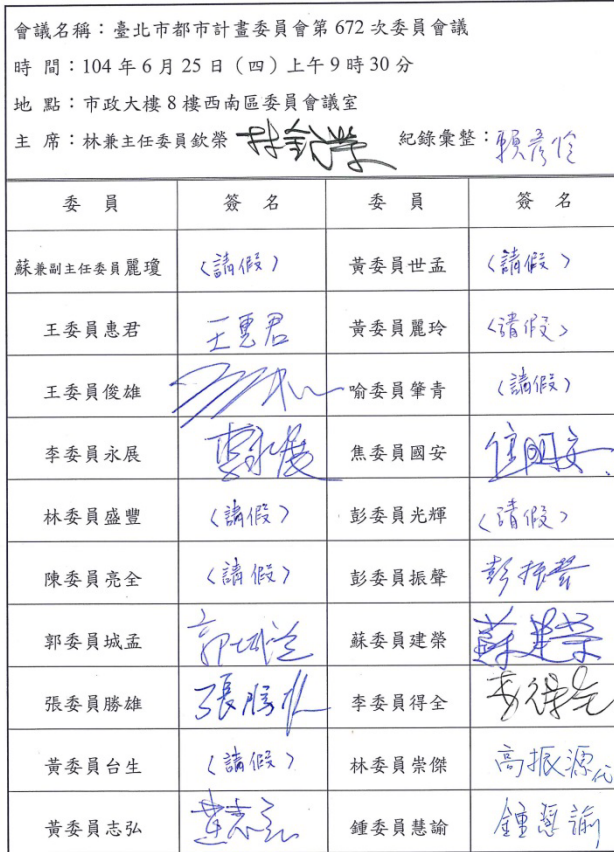 會議名稱：臺北市都市計畫委員會第 672 次委員會議
時 間：104 年 6 月 25 日（四）上午 9 時 30 分
地 點：市政大樓 8 樓西南區委員會議室
主 席：林兼主任委員欽榮 林欽榮 紀錄彙整：賴彥伶
委 員 簽 名 委 員 簽 名
蘇兼副主任委員麗瓊 （請假） 黃委員世孟 （請假）
王委員惠君 王惠君 黃委員麗玲 （請假）
王委員俊雄 喻委員肇青 （請假）
李委員永展 李永展 焦委員國安 焦國安
林委員盛豐 （請假） 彭委員光輝 （請假）
陳委員亮全 （請假） 彭委員振聲 彭振聲
郭委員城孟 郭城孟 蘇委員建榮 蘇建榮
張委員勝雄 張勝雄 李委員得全 李得全
黃委員台生 （請假） 林委員崇傑 高振源代
黃委員志弘 黃志弘 鍾委員慧諭 鍾慧諭